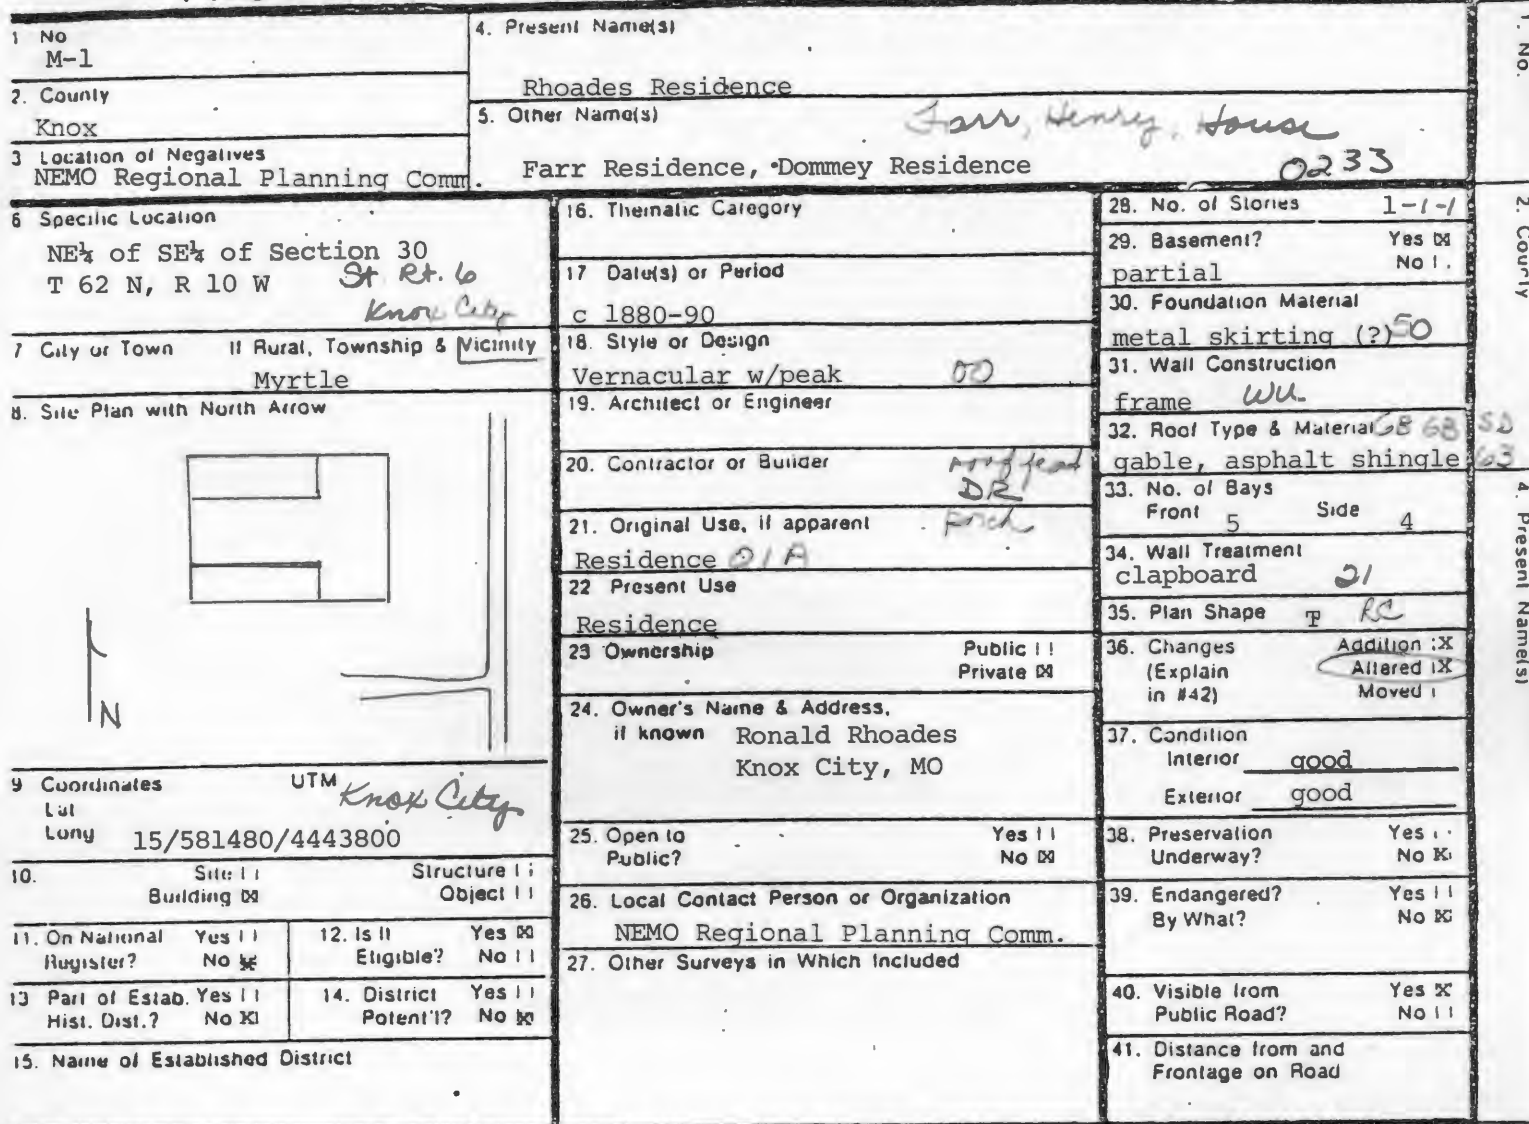 1 No
M-1
2. County
Knox
3 Location of Negatives
NEMO Regional Planning Comm.
4. Present Name(s)
Rhoades Residence
5. Other Name(s)
Farr, Henry, House
Farr Residence, Dommey Residence
0233
6 Specific Location
NE¼ of SE¼ of Section 30
T 62 N, R 10 W St. Rt. 6
Knox City
7 City or Town If Rural, Township & Vicinity
Myrtle
8. Site Plan with North Arrow
N
9 Coordinates UTM Knox City
Lat
Long 15/581480/4443800
10. Site Structure
Building X Object
11. On National Register? Yes No X
12. Is It Eligible? Yes X No
13 Part of Estab. Hist. Dist.? Yes No X
14. District Potent'l? Yes No X
15. Name of Established District
16. Thematic Category
17 Date(s) or Period
c 1880-90
18. Style or Design
Vernacular w/peak 00
19. Architect or Engineer
20. Contractor or Builder
DR
Porch
21. Original Use, if apparent
Residence 01A
22 Present Use
Residence
23 Ownership Public
Private X
24. Owner's Name & Address,
if known Ronald Rhoades
Knox City, MO
25. Open to Yes
Public? No X
26. Local Contact Person or Organization
NEMO Regional Planning Comm.
27. Other Surveys in Which Included
28. No. of Stories 1-1-1
29. Basement? Yes X
partial No
30. Foundation Material
metal skirting (?) 50
31. Wall Construction
frame WU
32. Roof Type & Material GB GB SD
gable, asphalt shingle 63
33. No. of Bays
Front 5 Side 4
34. Wall Treatment
clapboard 21
35. Plan Shape T RC
36. Changes Addition X
(Explain Altered X
in #42) Moved
37. Condition
Interior good
Exterior good
38. Preservation Yes
Underway? No X
39. Endangered? Yes
By What? No X
40. Visible from Yes X
Public Road? No
41. Distance from and
Frontage on Road
1. No.
2. County
4. Present Name(s)